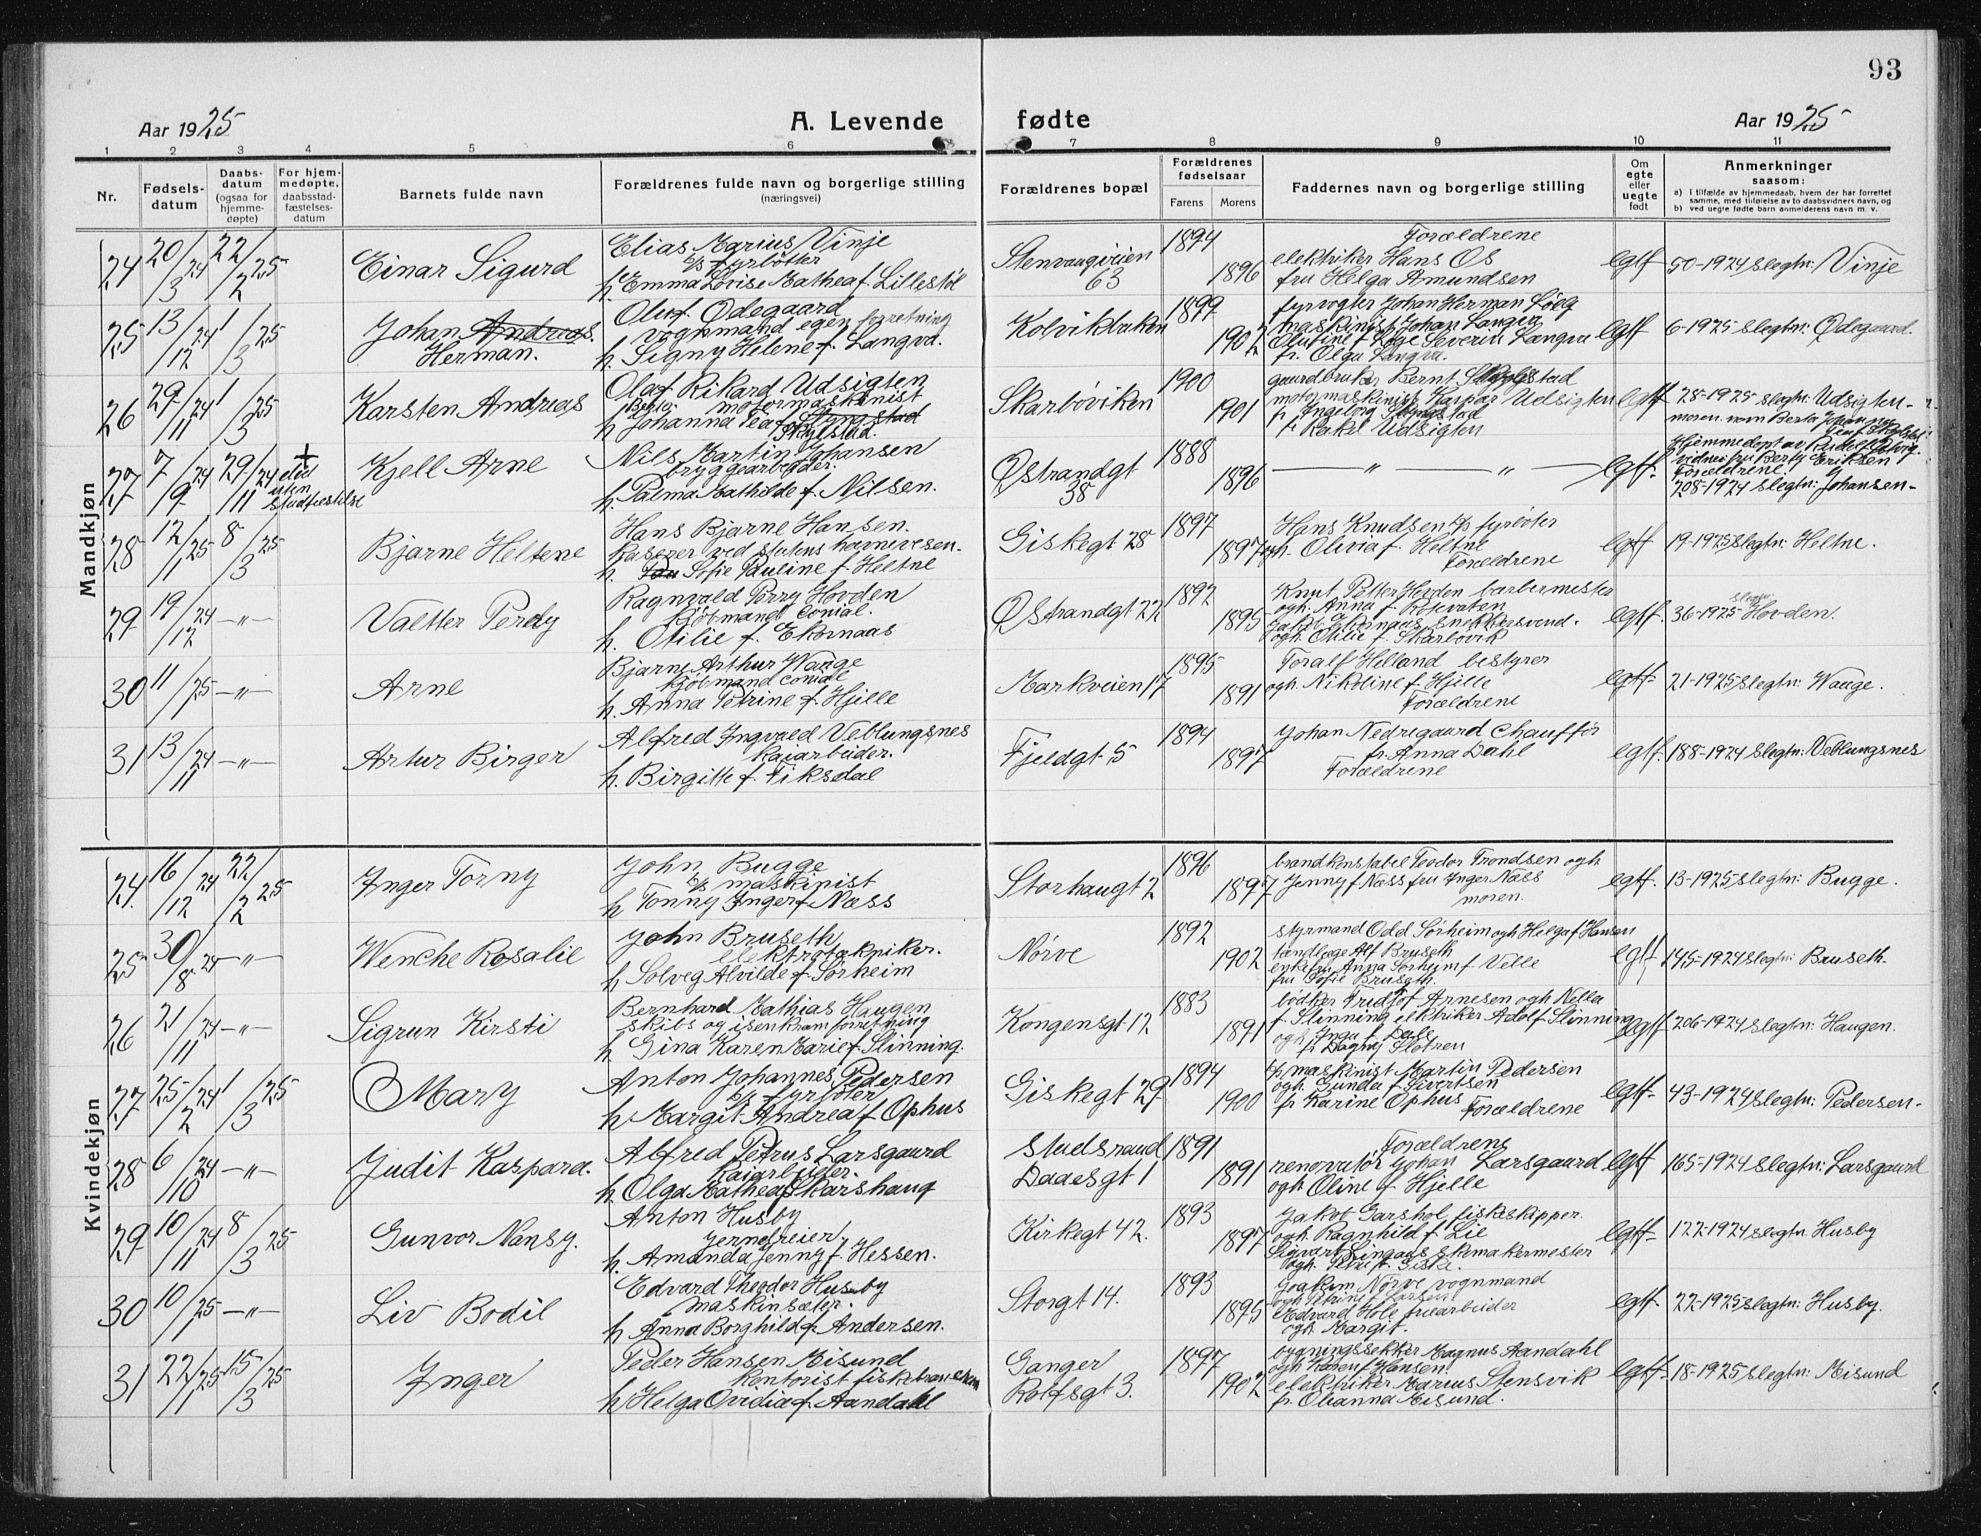 93
Aar 1925 A. Levende fødte Aar 1925
1 2 3 4 5 6 7 8 9 10 11
Nr.
Fødsels-
datum
Daabs-
datum
(ogsaa for
hjemme-
døpte)
For hjem-
medøpte,
daabsstad-
fæstelses-
datum
Barnets fulde navn
Forældrenes fulde navn og borgerlige stilling
(næringsvei)
Forældrenes bopæl
Forældrenes
fødselsaar
Farens Morens
Faddernes navn og borgerlige stilling
Om
egte
eller
uegte
født
Anmerkninger
saasom:
a) I tilfælde av hjemmedaab, hvem der har forrettet
samme, med tilføielse av to daabsvidners navn, og
b) ved uegte fødte barn anmelderens navn m. v.
Mandkjøn
24 20/3 24 22/2 25
Einar Sigurd
Elias Marius Vinje
fyrbøter
h. Emma Lovise Mathea f. Lillestøl
Stenvaagveien
63
1894
1896
Forældrene
elektriker Hans Os
fru Helga Amundsen
egtf
50-1924 slegtn: Vinje
25 13/12 24 1/3 25
Johan Andreas.
Herman.
Oluf Ødegaard
vognmand egen forretning
h. Signy Helene f. Langva.
Kolvikbakken
1899
1902
fyrvogter Johan Herman
maskinist Johan Langva
Severin Langva
fr. Olga Langva.
egtf
6-1925 slegtn: Ødegaard.
26 29/11 24 1/3 25
Karsten Andreas
Olaf Rikard Udsigten
motormaskinist
h Johanna f. Skylstad.
Skarbøviken
1900
1901
gaardbruker Bernt Skylstad
motormaskinist Kaspar Udsigten
fr Ingeborg
fr Rakel Udsigten
egtf
28-1925 slegtn: Udsigten
moren: navn Berta Johanna
27 7/9 24 29/11 24
+
uten
stadfæstelse
Kjell Arne
Nils Martin Johansen
bryggearbeider.
h. Palma Mathilde f. Nilsen.
Østrandgt
38
1888
1896
— " — " —
egtf
Hjemmedøpt av
vidner: fru Berty Eriksen
Forældrene.
208-1924 slegtn: Johansen-
28 12/1 25 8/3 25
Bjarne Heltene
Hans Bjarne Hansen.
kaserer ved statens havnevesen.
h. Sofie Pauline f. Heltne
Giskegt 28
1897
1897
Hans Knudsen fyrbøter
ogh. Olivia f. Heltne
Forældrene
egtf
19-1925 slegtn: Heltne.
29 19/12 24 -"-
Valtter Perdy
Ragnvald Perry Hovden
kjøbmand Conial.
h. Otilie f. Ekornaas
Østrandgt 22
1892
1895
Knut Petter Hovden barbermester
ogh. Anna f. Rotevaten
Jakob Ekornaas snekkersvend.
ogh. Otilie f. Skarbøvik
egtf.
36-1925 slegtn: Hovden.
30 11/1 25 -"-
Arne
Bjarne Arthur Waage
kjøbmand Conial
h. Anna Petrine f. Hjelle
Markveien 17
1895
1891
Toralf Helland bestyrer
ogh. Nikoline f. Hjelle
Forældrene
egtf
21-1925 slegtn: Waage.
31 13/11 24 -"-
Artur Birger
Alfred Ingvald Veblungsnes
kaiarbeider.
h. Birgitte f. Fiksdal
Fjeldgt 5
1894
1897
Johan Nedregaard Chauffør
fr. Anna Dahl
Forældrene
egtf.
188-1924 slegtn: Veblungsnes
Kvindekjøn
24 16/12 24 22/2 25
Inger Torny
John Bugge
maskinist
h Tonny Inger f. Næss
Storhaugt 2
1896
1897
brandkonstabel Teodor Trondsen ogh
Jenny f Næss fru Inger Næss
moren.
egtf.
13-1925 slegtn: Bugge.
25 30/8 24 -"-
Wenche Rosalie
John Bruseth
elektrotekniker.
h Solveg Alvilde f. Sørheim
Nørve
1892
1902
styrmand Odd Sørheim ogh Helga f Hansen
tandlæge Alf Bruseth
enkefru Anna Sørheim f Velle
fru Sofie Bruseth.
egtf
145-1924 slegtn: Bruseth.
26 21/11 24 -"-
Sigrun Kirsti
Bernhard Mathias Haugen
skibs og isenkramforretning
h Gina Karen Marie f. Slinning.
Kongensgt 12
1883
1891
bødker Fridtjof Arnesen ogh Nella
f. Slinning elektriker Adolf Slinning
ogh Inga f. Dale
fr Dagny Slotnen
egtf
206-1924 slegtn: Haugen.
27 25/2 24 1/3 25
Mary
Anton Johannes Pedersen
fyrbøter
h Margit Andrea f Ophus
Giskegt 29
1894
1900
maskinist Martin Pedersen
ogh. Gunda f. Sivertsen
fr Karine Ophus Forældrene
egtf
43-1924 slegtn: Pedersen-
28 6/10 24 -"-
Judit Kaspara.
Alfred Petrus Larsgaard
kaiarbeider.
h Olga Mathea f Skarshaug
Studsraad
Daaesgt 1
1891
1891
Forældrene
renovatør Johan Larsgaard
ogh. Oline f. Hjelle
egtf
165-1924 slegtn: Larsgaard
29 10/11 24 8/3 25
Gunvor Nansy.
Anton Husby
jerndreier,
h. Amanda Jenny f. Hessen.
Kirkegt 42.
1893
1897
Jakob Garshol fiskeskipper.
ogh. Ragnhild f. Lie
Sigvart Ringaas skomakermester
ogh. Petra f. Giske.
egtf
122-1924 slegtn: Husby
30 10/1 25 -"-
Liv Bodil
Edvard Theodor Husby
maskinsæter.
h Anna Borghild f. Andersen.
Storgt 14.
1893
1895
Joakim Nørve vognmand
ogh Petrine f. Larsen
Edvard Hole
ogh. Margit.
egtf
22-1925 slegtn: Husby.
31 22/1 25 15/3 25
Inger
Peder Hansen Misund
kontorist fiskebranchen
h Helga Ovidia f. Aandahl
Ganger
Rolfsgt 3.
1897
1902
bygningssnekker Magnus Aandahl
ogh Karen f Hansen
elektriker Marius Stensvik
fr. Olianna Misund.
egtf
18-1925 slegtn: Misund